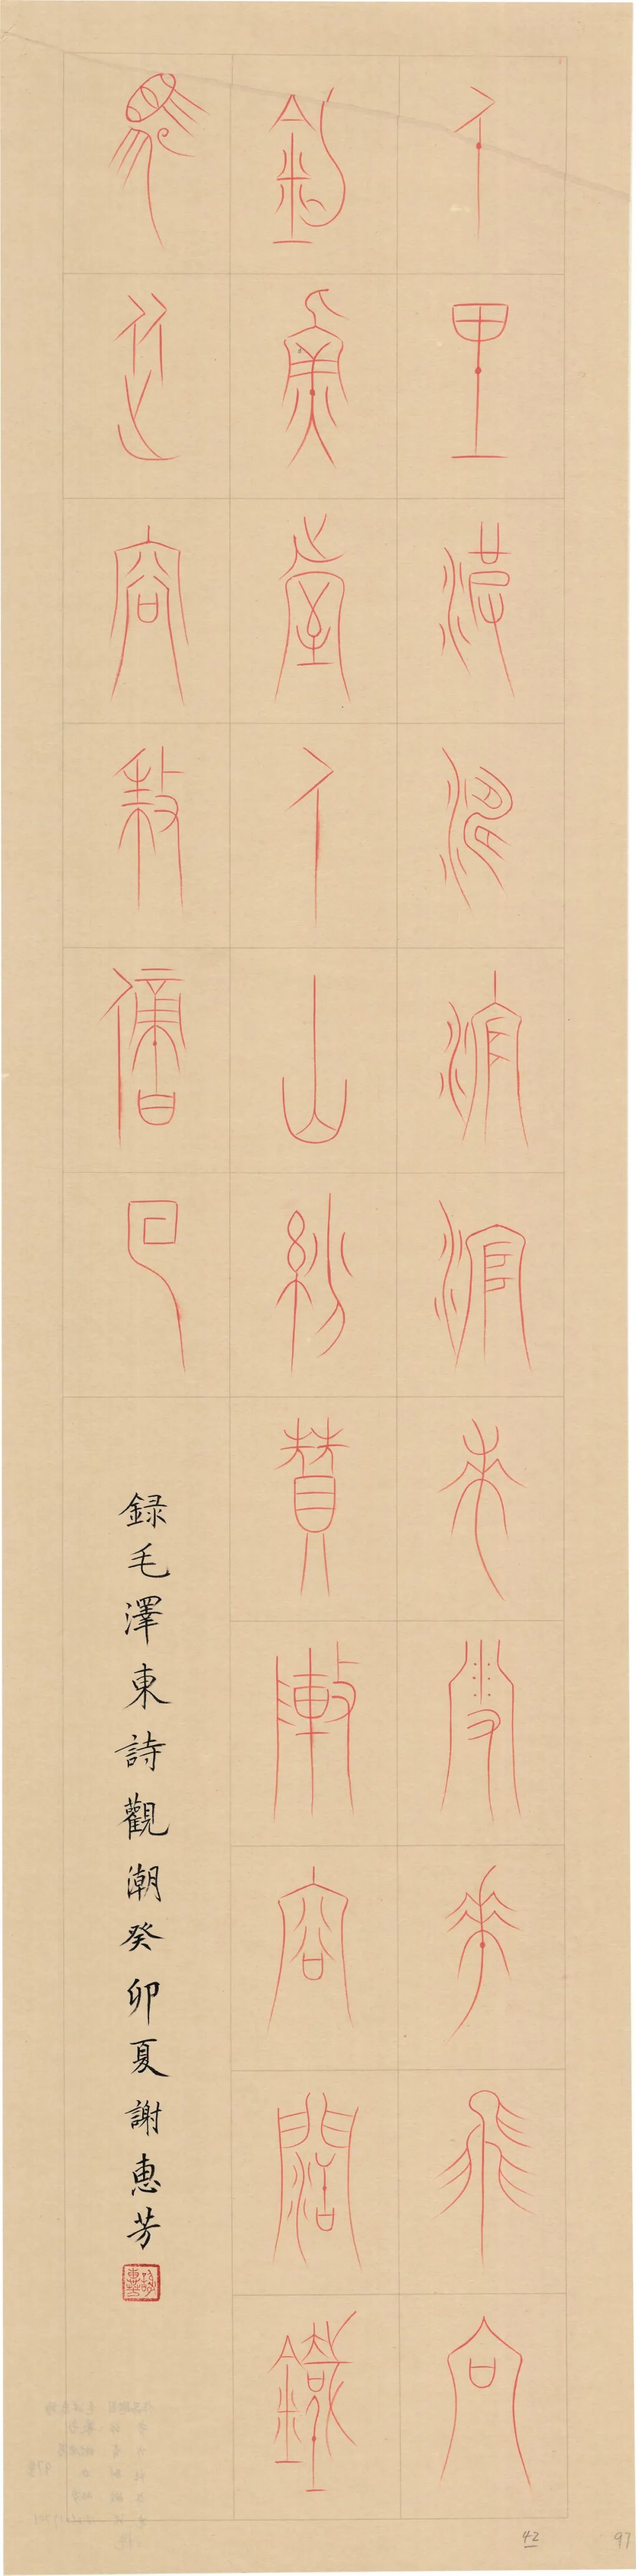 千里波濤滾滾來雪華飛向
釣魚臺人山紛贊陣容闊鐵
馬從容殺敵回
録毛澤東詩觀潮癸卯夏謝惠芳
42
97